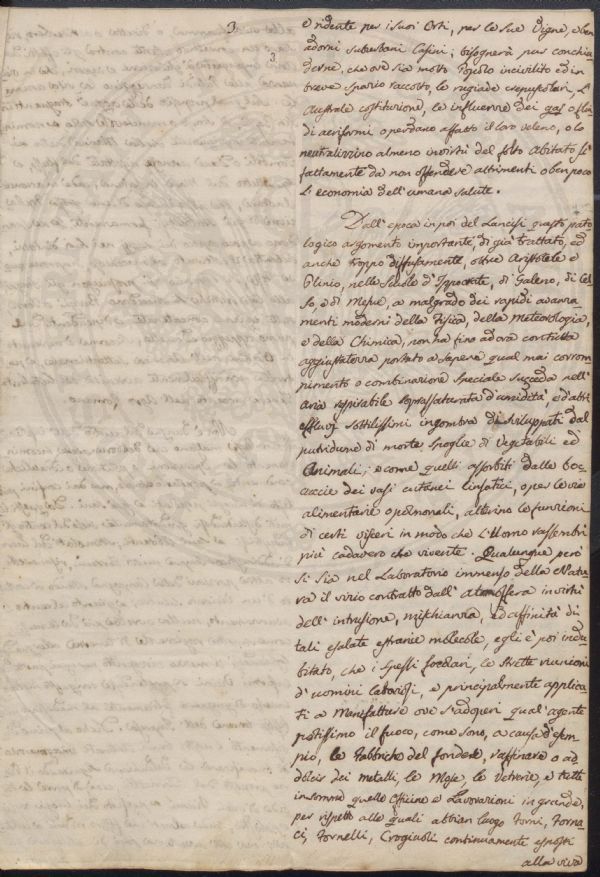 3.
3
e ridente per i suoi Orti, per le sue Vigne, e ben
adorni suburbani Casini; bisognerà pur conchiu-
derne, che ove sia molto Popolo incivilito ed in
breve spazio raccolto, le rugiade crepuscolari, l'
Australe costituzione, le influenze dei gas o flui-
di aeriformi o perdano affatto il loro veleno, o lo
neutralizzino almeno in virtù del folto Abitato sì
fattamente da non offendere altrimenti o ben poco
l'economia dell'umana salute.
Dall'epoca in poi del Lancisi questo pato-
logico argomento importante, di già trattato, ed
anche troppo diffusamente, oltre Aristotele e
Plinio, nelle Scuole d'Ippocrate, di Galeno, di Cel-
so, e di Mesue, a malgrado dei rapidi avanza-
menti moderni della Fisica, della Meteorologia,
e della Chimica, non ha fino ad ora contuttta
aggiustatezza portato a sapere qual mai corrom-
pimento o combinazione speciale succeda nell'
Aria respirabile soprassaturata d'umidità, e d'altri
effluvj sottilissimi ingombra di sviluppati dal
putridume di morte spoglie di Vegetabili ed
Animali; e come quelli assorbiti dalle boc-
caccie dei vasi cutanei linfatici, o per le vie
alimentarie o polmonali, alterino le funzioni
di certi visceri in modo che l'Uomo rassembri
più cadavero che vivente. Qualunque però
si sia nel Laboratorio immenso della Natu-
ra il vizio contratto dall'atmosfera in virtù
dell'intrusione, mischianza, ed affinità di
tali esalate estranie molecole, egli è poi indu-
bitato, che i spessi focolari, le strette riunioni
d'uomini laboriosi, e principalmente applica-
ti a Manifatture ove s'adoperi qual'agente
potissimo il fuoco, come sono, a causa d'esem-
pio, le Fabbriche del fondere, raffinare o ad-
dolcir dei metalli, le Mose, le Vetrerie, e tutte
insomma quelle Officine e Lavorazioni in grande,
per rispetto alle quali abbian luogo Forni, Forna-
ci, Fornelli, Crogiuoli continuamente esposti
alla viva